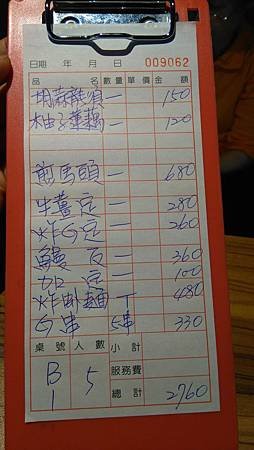 日期 年 月 日 009062
品 名 數量 單價 金 額
胡蒜雞頸 一 150
柚子蓮藕 一 120
煎馬頭 一 680
牛薑定 一 280
炸G定 一 260
鰻 石 一 360
加 定 一 100
炸卧麵 丁 480
G串 5串 330
桌號 人數 小計
B1 5 服務費
總計 2760